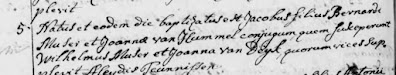 plevit
5. Natus et eodem die baptizatus est Jacobus filius Bernardi
Muser et Joannæ van Hummel conjugum quem susceperunt
Wilhelmus Muser et Joanna van Deyk quorum vices sup,
plevit Aleydis Teunnissen